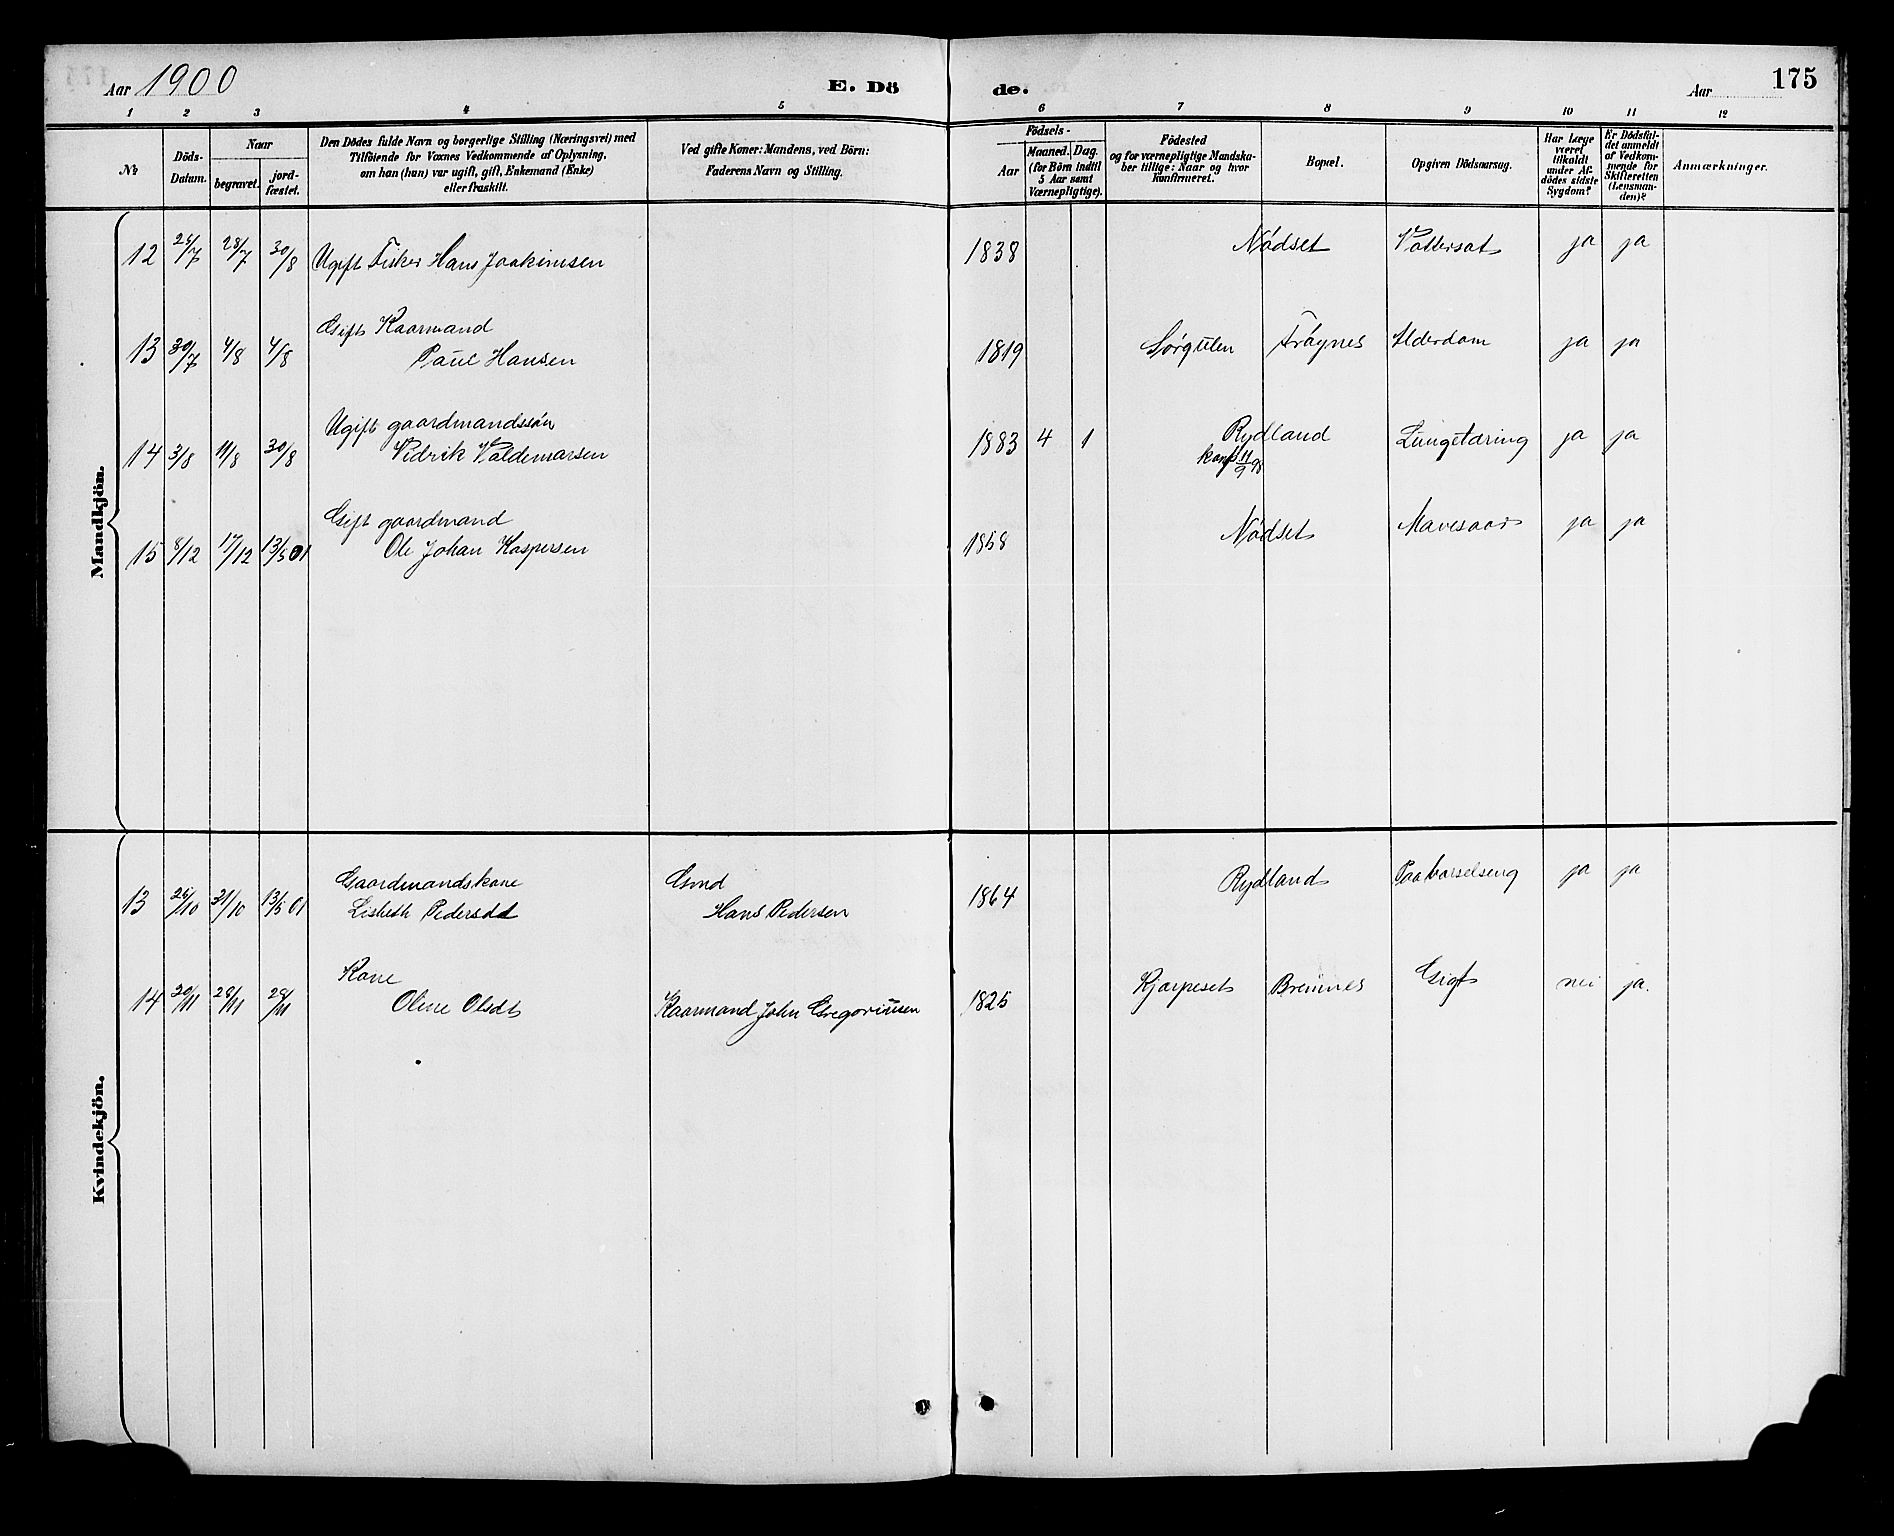 Aar 1900 E. Dö de. Aar 175
1 2 3 4 5 6 7 8 9 10 11 12
№ Döds-Datum. Naar begravet. jord-fæstet.
Den Dödes fulde Navn og borgerlige Stilling (Næringsvei) med
Tilföiende for Voxnes Vedkommende af Oplysning,
om han (hun) var ugift, gift, Enkemand (Enke)
eller fraskilt.
Ved gifte Koner: Mandens, ved Börn:
Faderens Navn og Stilling.
Födsels-
Aar Maaned. Dag.
(for Börn indtil
5 Aar samt
Værnepligtige).
Födested
og for værnepligtige Mandska-
ber tillige: Naar og hvor
konfirmeret.
Bopæl.
Opgiven Dödsaarsag.
Har Læge
været
tilkaldt
under Af-
dödes sidste
Sygdom?
Er Dödsfal-
det anmeldt
af Vedkom-
mende for
Skifteretten
(Lensman-
den)?
Anmærkninger.
Mandkjön.
12 28/7 30/8 Ugift Fisker Hans Joakimsen 1838 Nödset Vattersot ja ja
Gift Kaarmand
13 30/7 4/8 4/8 Paul Hansen 1819 Sörgulen Fröynes Alderdom ja ja
Ugift gaardmandssön
14 3/8 11/8 30/8 Vidrik Valdemarsen 1883 4 1 Rydland Lungetæring ja ja
konf 11/9 98
Gift gaardmand
15 8/12 17/12 13/5 01 Ole Johan Kaspersen 1858 Nödset Mavesaar ja ja
Kvindekjön.
Gaardmandskone Gmd
13 26/10 31/10 13/5 01 Lisbeth Pedersdt Hans Pedersen 1864 Rydland Paa barselseng ja ja
Kone
14 20/11 28/11 28/11 Oline Olsdt Kaarmand John Gregoriussen 1825 Kjørpeset Bremnes Gigt nei ja.